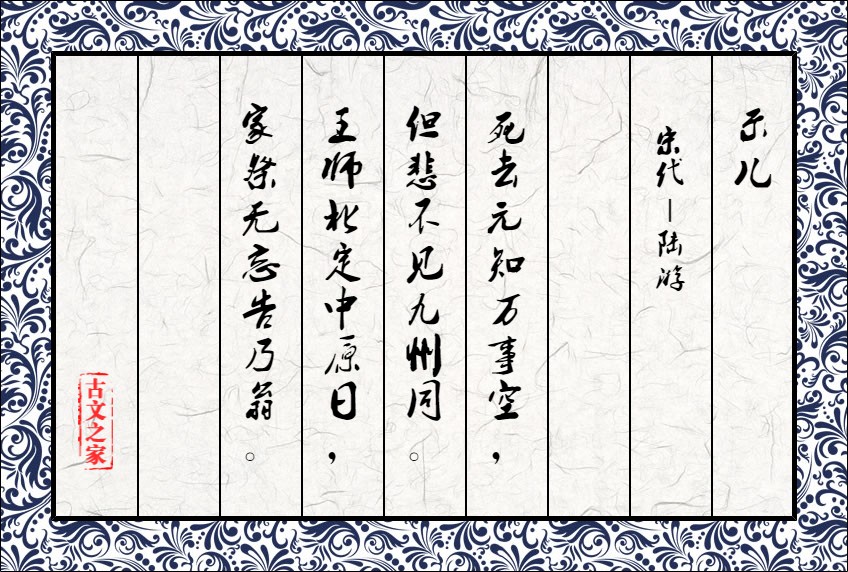 示儿
宋代—陆游
死去元知万事空，
但悲不见九州同。
王师北定中原日，
家祭无忘告乃翁。
古文之家